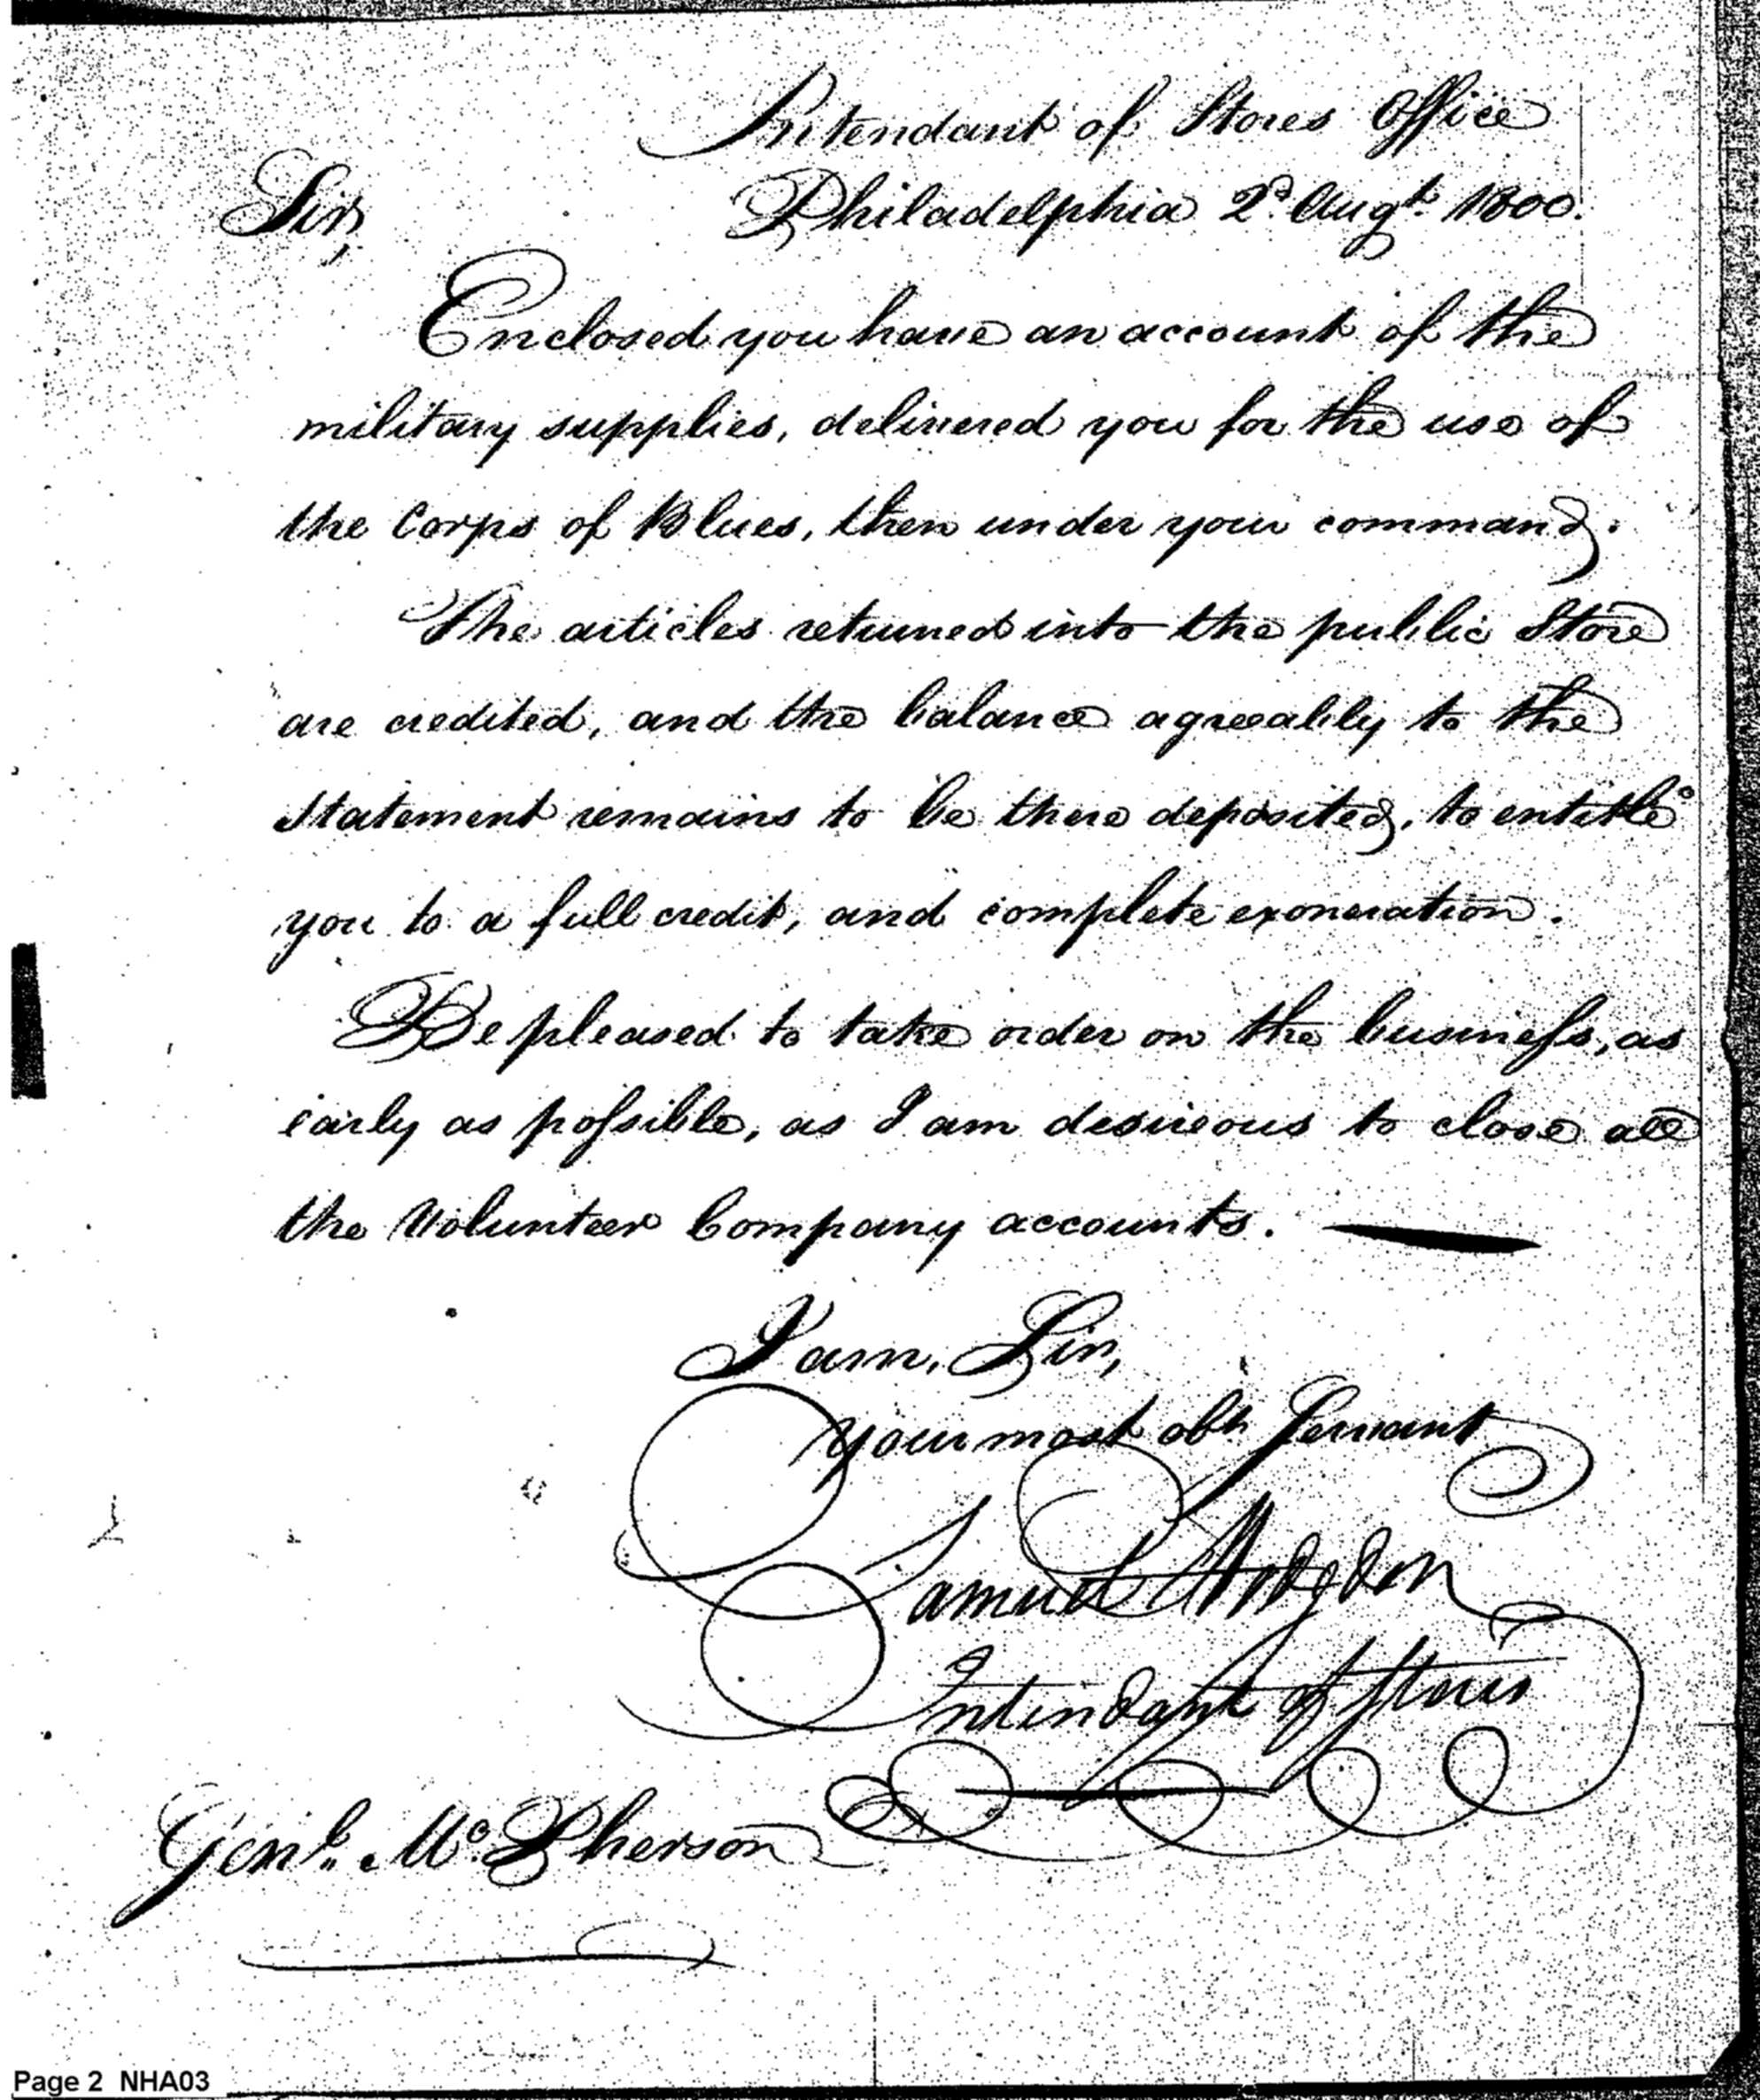 Intendant of Stores Office
Sir, Philadelphia 2d. Augt. 1800.
Enclosed you have an account of the
military supplies, delivered you for the use of
the Corps of Blues, then under your command.
The articles returned into the public Store
are credited, and the balance agreeably to the
Statement remains to be there deposited, to entitle
you to a full credit, and complete exoneration.
Be pleased to take order on the business, as
early as possible, as I am desireous to close all
the Volunteer Company accounts.
I am, Sir,
your most obt. Servant
Samuel Hodgdon
Intendant of Stores
Genl. McPherson
Page 2 NHA03